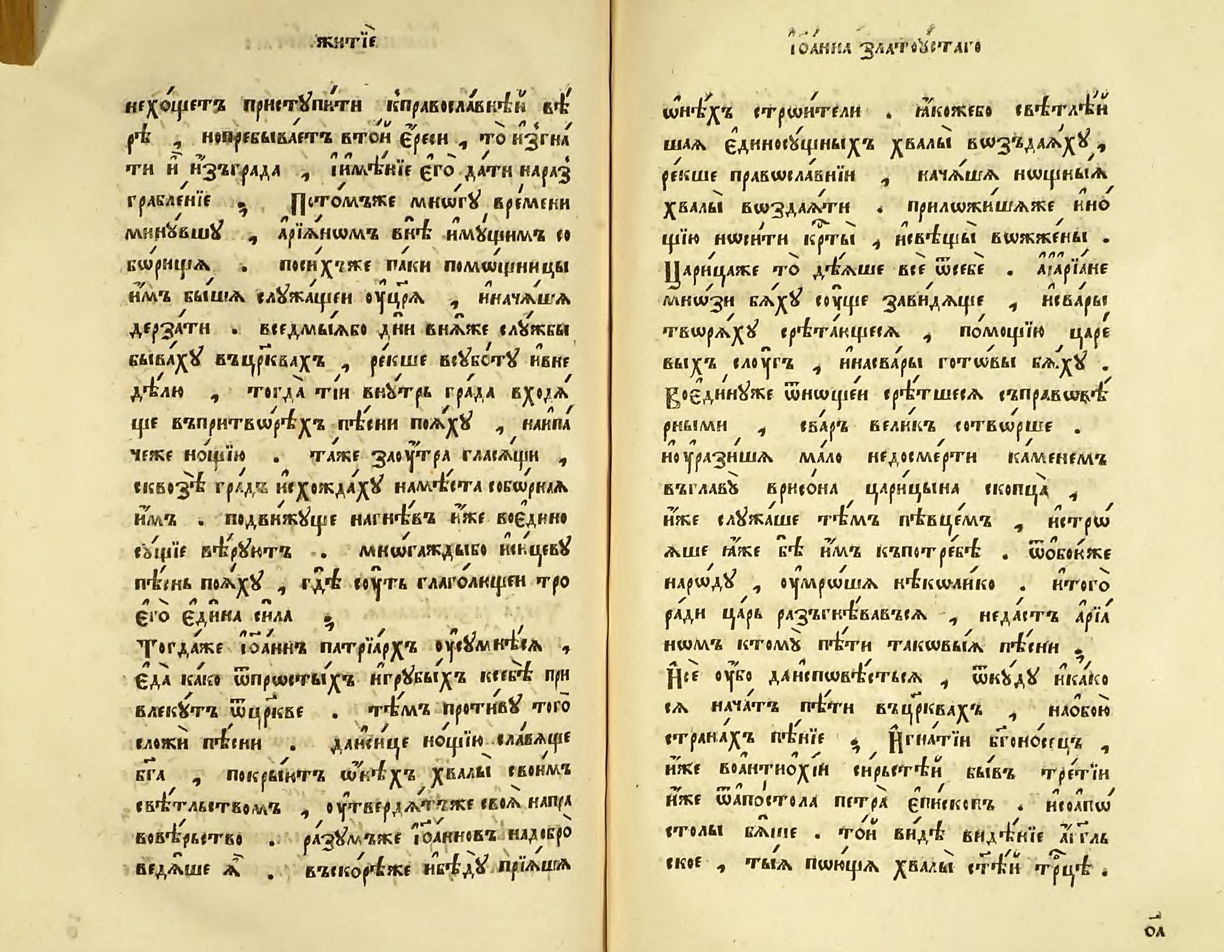 житїѐ
нехо́щетъ пристꙋпи́ти кправосла́внѣй вѣ́
рѣ , нопребыва́етъ вто́й є҆́реси , то̀ и҆згна́
ти и҆̀ и҆зъгра́да , і҆имѣ́нїе є҆го̀ да́ти нараз̾
грабле́нїе ; Пото́мъже мнѡ́гꙋ вре́мени
минꙋ́вшꙋ , а҆рїѧ́нѡмъ внѣ̀ и҆мꙋ́щимъ со
бѡ́рища . поси́хъже па́ки помѡ́щницы
и҆̀мъ бы́шѧ слꙋжа́щеи оу҆црⷭ҇ѧ̀ , и҆нача́шѧ
дерза́ти . вседмы́ѧбо дни̑ внѧ́же слꙋ́жбы
быва́хꙋ въцр҃квахъ , ре́кше всꙋбо́тꙋ и҆вне
дѣ́лю , тогда̀ ті́и внꙋ́трь гра́да входѧ́
ще въпритвѡ́рѣхъ пѣ́сни поѧ́хꙋ , наипа́
чеже но́щїю . та́же заоу҆́тра гласѧ́щи ,
сквозѣ̀ гра́дъ и҆схожда́хꙋ намѣ́ста собѡ́рнаѧ
и҆̀мъ . подви́жꙋще нагнѣ́въ и҆̀же воє҆ди́но
сꙋ́щїе вѣ́рꙋютъ . мнѡ́гаждыбо и҆си́цевꙋ
пѣ́снь поѧ́хꙋ , гдѣ̀ сꙋ́ть глаго́лющеи тро
є҆го̀ є҆ди́на си́ла ;
Тогда́же і҆ѡа́ннъ патрїа́рхъ оу҆сꙋмнѣ́сѧ ,
є҆да̀ ка́ко ѿпрѡсты́хъ и҆грꙋ́быхъ ксебѣ̀ при
влекꙋ́тъ ѿцр҃кве . тѣ́мъ проти́вꙋ того̀
сложѝ пѣ́сни . даи҆си́це но́щїю сла́вѧще
бг҃а , покры́ютъ ѡ҆нѣ́хъ хвалы̀ свои́мъ
свѣ́тльствомъ , оу҆твердѧ́тъже своѧ̀ напра
вовѣ́рьство . ра́зꙋмъже і҆ѡа́нновъ надобро̀
ведѧ́ше ѧ҆̀ . въско́рѣже и҆бѣдꙋ̀ прїѧ́шѧ
і҆ѡа́нна златоꙋ́стаго
ѡ҆нѣ́хъ стрѡи́тели . ꙗ҆́кожебо свѣтлѣ́й
шаѧ є҆диносꙋ́щныхъ хвалы̀ вѡздаѧ́хꙋ ,
ре́кше правѡсла́внїи , нача́шѧ нѡщны́ѧ
хвалы̀ вѡздаѧ́ти . прилѡжи́шѧже и҆но́
щїю нѡси́ти крⷭ҇ты̀ , и҆свѣщы̀ вѡжже́ны .
Цари́цаже то̀ дѣ́ѧше всѐ ѿсебѐ . а҆арїа́не
мно́зи бѧ́хꙋ соу҆́ще зави́дѧще , и҆сва́ры
творѧ́хꙋ срѣта́ющесѧ , по́мощїю царе́
выхъ слоу҆́гъ , и҆насва́ры гото́вы бѧ́хꙋ .
Воє҆ди́нꙋже ѿнѡщеи срѣ́тшесѧ съправѡвѣ́
рными , сва́ръ вели́къ сотвѡ́рше .
ноу҆рази́шѧ ма́ло недосме́рти ка́менемъ
въглавꙋ̀ врисо́на цари́цына скопца̀ ,
и҆́же слꙋжа́ше тѣ́мъ пѣвце́мъ , и҆стрѡ́
ѧше ꙗ҆́же бѣ̀ и҆́мъ къпотре́бѣ . ѿѻбои́же
нарѡ́дꙋ , оу҆мрѡ́шѧ нѣ́колико . и҆того̀
ра́ди ца́рь разъгнѣ́вавъсѧ , неда́стъ а҆рїа́
нѡмъ ктомꙋ̀ пѣ́ти таковы́ѧ пѣ́сни ;
И҆сѐ оу҆́бо даи҆сповѣ́стьсѧ , ѿкꙋ́дꙋ и҆ка́ко
сѧ нача́тъ пѣ́ти въцр҃квахъ , наѻбою̀
страна́хъ пѣ́нїе ; И҆гна́тїи бг҃оно́сецъ ,
и҆́же воантиохі́и си́рьстѣй бы́въ тре́тїи
и҆́же ѿапо́стола петра̀ є҆пи́скопъ . и҆соапѡ́
столы бѧ́ше . то́й ви́дѣ видѣ́нїе а҆́гг҃ль
ское , ты́ѧ пѡю́щѧ хвалы̀ ст҃ѣй трⷪ҇цѣ .
ѻ҃л